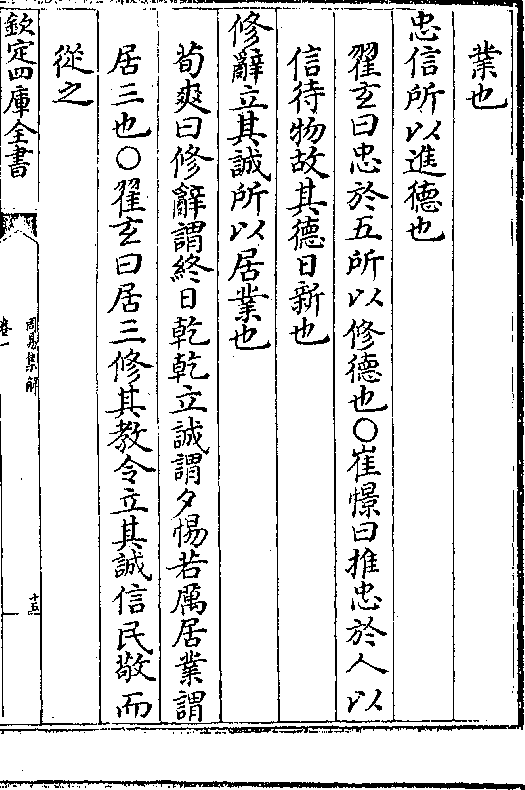 業也
忠信所以進德也
翟玄曰忠於五所以修德也○崔憬曰推忠於人以
信待物故其德日新也
修辭立其誠所以居業也
荀爽曰修辭謂終日乾乾立誠謂夕惕若厲居業謂
居三也○翟玄曰居三修其教令立其誠信民敬而
從之
欽定四庫全書
周易集解
卷一
十五